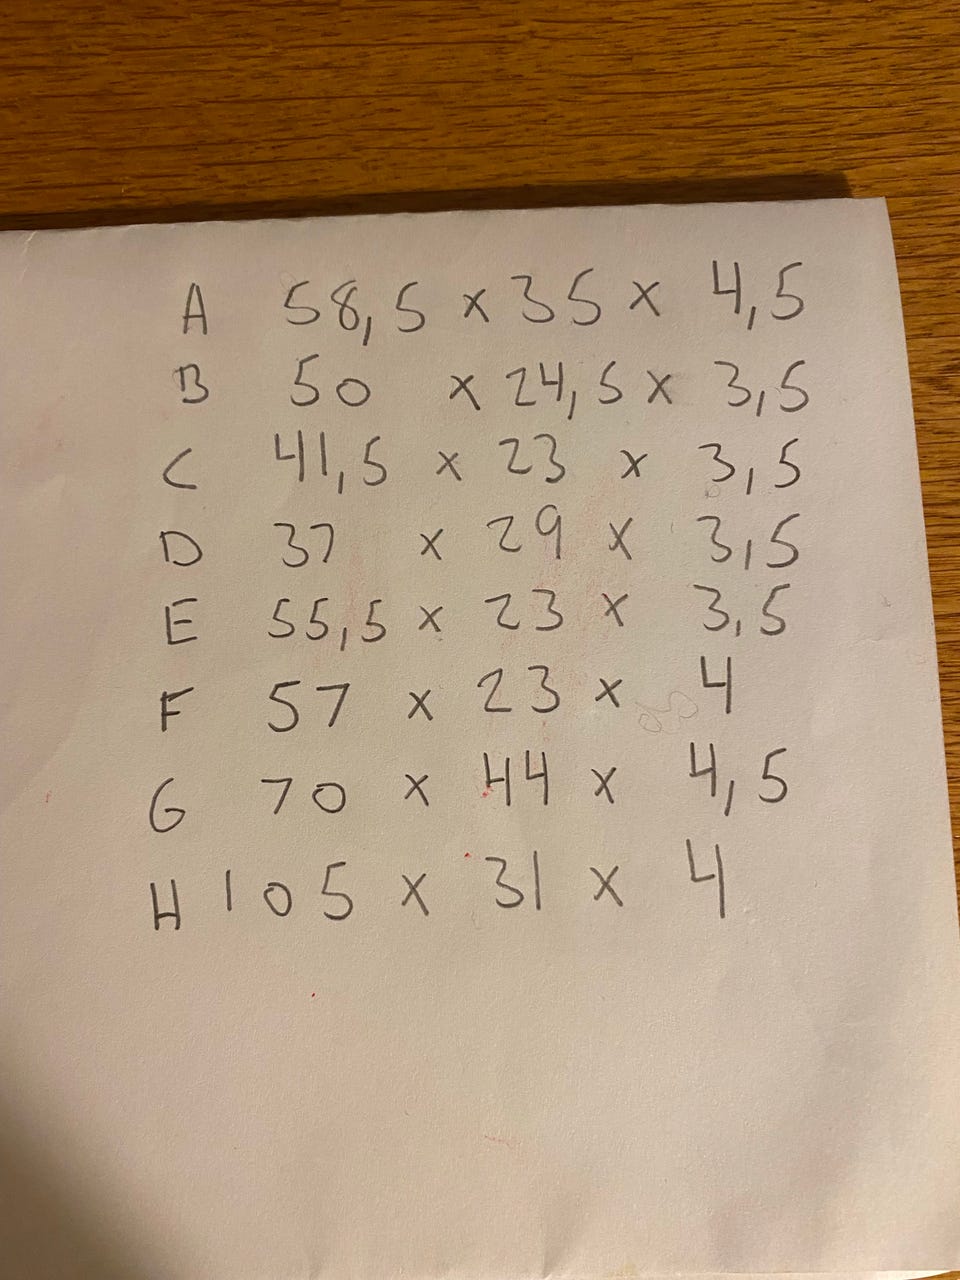 A 58,5 x 35 x 4,5
B 50 x 24,5 x 3,5
C 41,5 x 23 x 3,5
D 37 x 29 x 3,5
E 55,5 x 23 x 3,5
F 57 x 23 x 4
G 70 x 44 x 4,5
H 105 x 31 x 4